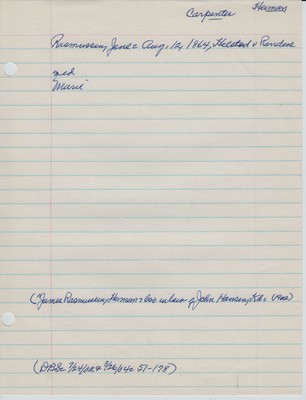 Carpenter Herman
Rasmussen, Jens = Aug. 12, 1864, Helsted v Randers
md
Marie
("James Rasmussen, Herman = bro in law of John Hansen,
(DBS= 9/24/02 & 9/26/04= 51-178)